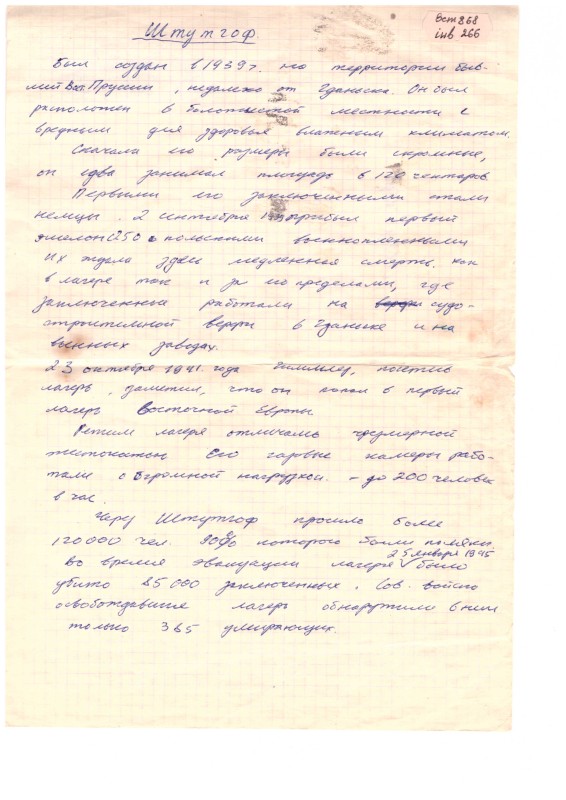 Вст 868
инв 266
Штутгоф.
Был создан в 1939 г. на территории быв-
шей Вост. Пруссии, недалеко от Гданска. Он был
расположен в болотистой местности с
вредным для здоровья влажным климатом.
Сначала его размеры были скромные,
он едва занимал площадь в 120 гектаров
Первыми его заключенными стали
немцы. 2 сентября прибыл первый
эшелон (250 с польскими военнопленными
Их ждала здесь медленная смерть. как
в лагере так и за его пределами, где
заключенные работали на верфи судо-
строительной верфи в Гданьске и на
военных заводах.
23 октября 1941 года Гиммлер, посетив
лагерь, заметил, что он попал в первый
лагерь Восточной Европы
Режим лагеря отличался чрезмерной
жестокостью Его газовые камеры рабо-
тали с огромной нагрузкой. – до 200 человек
в час.
Через Штутгоф прошло более
120 000 чел. 90% которого были поляки
25 января 1945
во время эвакуации лагеря было
убито 25 000 заключенных. Сов. войска
освобождавшие лагерь обнаружили в нем
только 385 умирающих.